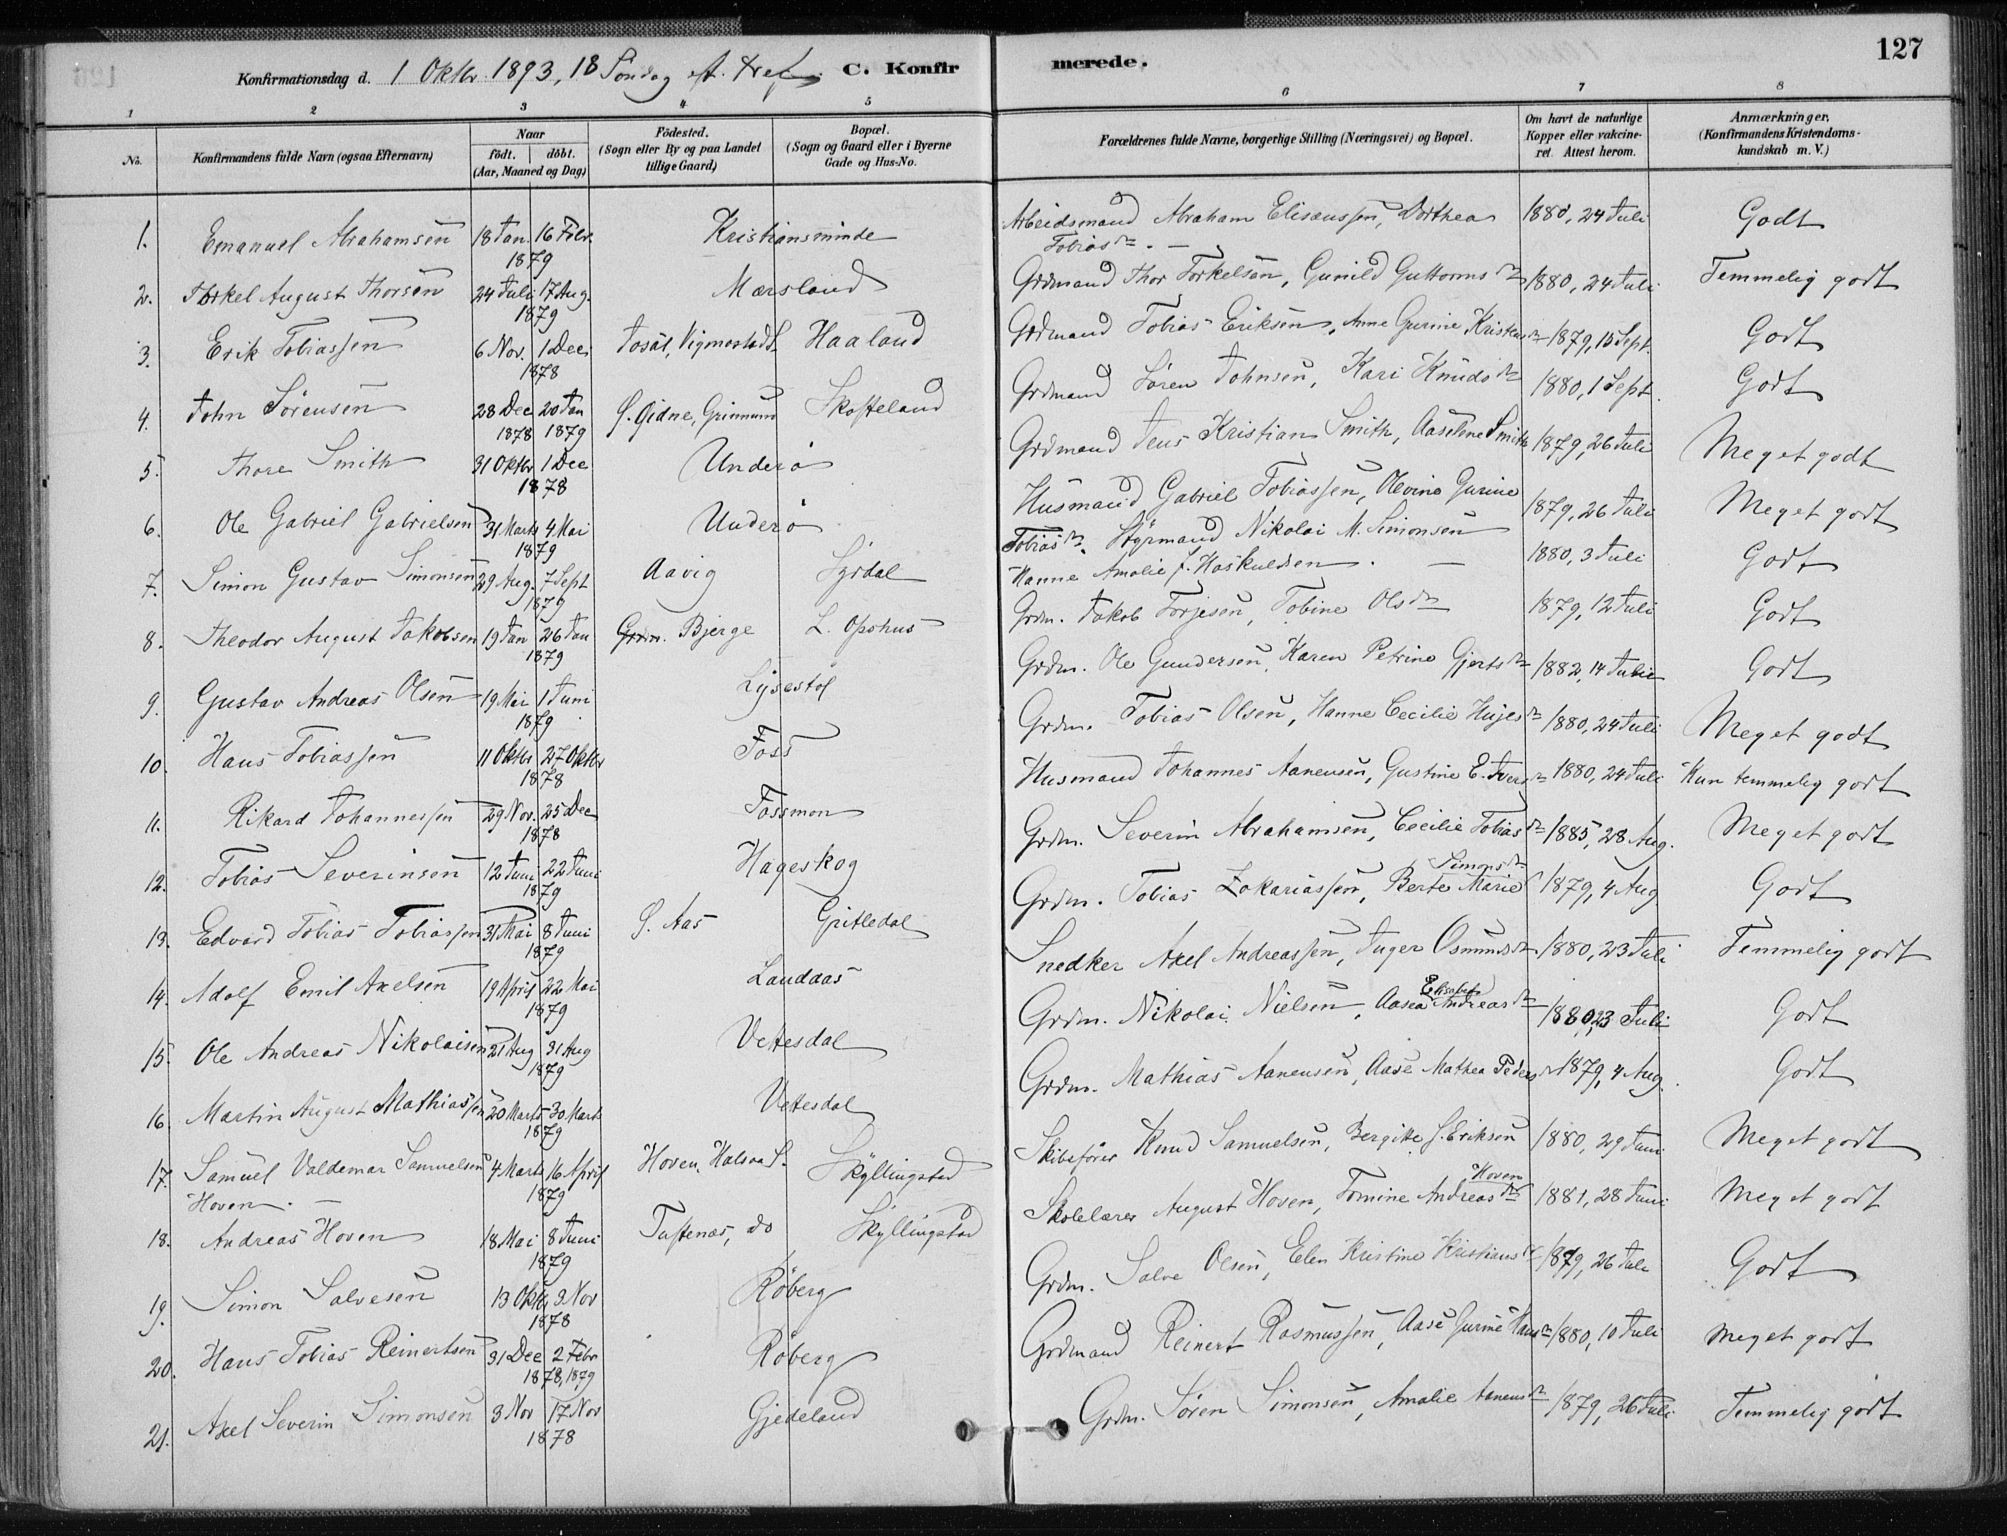 127
Konfirmationsdag d. 1 Oktbr. 1893, 18 Søndag eft. Tref. C. Konfirmerede.
1 2 3 4 5 6 7 8
No. Konfirmandens fulde Navn (ogsaa Efternavn) Naar født. døbt. (Aar, Maaned og Dag) Födested. (Sogn eller By og paa Landet tillige Gaard) Bopæl. (Sogn og Gaard eller i Byerne Gade og Hus-No. Forældrenes fulde Navne, borgerlige Stilling (Næringsvei) og Bopæl. Om havt de naturlige Kopper eller vakcineret. Attest herom. Anmærkninger. (Konfirmandens Kristendomskundskab m. V.)
1. Emanuel Abrahamsen 18 Jan. 16 Febr. 1879 Kristiansminde Arbeidsmand Abraham Elisæussen, Dorthea Tobiasdr. 1880, 24 Juli Godt
2. Torkel August Thorsen 24 Juli 17 Aug. 1879 Mærsland Grdmand Thor Torkelsen, Gunild Guttormsdr 1880, 24 Juli Temmelig godt
3. Erik Tobiassen 6 Nov. 1 Dec. 1878 Josål, Vigmostad S. Haaland Grdmand Tobias Eriksen, Anne Gurine Kristensdr 1879, 15 Sept. Godt
4. John Sørensen 28 Dec 1878 20 Jan 1879 S. Gidne, Grinnum Skofteland Grdmand Søren Johnsen, Kari Knudsdr 1880, 1 Sept. Godt
5. Thore Smith 31 Oktbr 1 Dec 1878 Underø Grdmand Jens Kristian Smith, Aaselene Smith 1879, 26 Juli Meget godt
6. Ole Gabriel Gabrielsen 31 Marts 4 Mai 1879 Underø Husmand Gabriel Tobiassen, Olevine Gurine Tobiasdr. 1879, 26 Juli Meget godt
7. Simon Gustav Simonsen 29 Aug. 7 Sept 1879 Aavig Syrdal Styrmand Nikolai M. Simonsen Hanne Amalie f. Haskuldsen. 1880, 3 Juli Godt
8. Theodor August Jakobsen 19 Jan 26 Jan 1879 Grdm. Bjerge L. Opohus Grdm. Jakob Torjesen, Tobine Olsdr 1879, 12 Juli Godt
9. Gustav Andreas Olsen 19 Mai 1 Juni 1879 Lysestøl Grdm. Ole Gundersen, Karen Petrine Gjertsdr 1882, 14 Juli Godt
10. Hans Tobiassen 11 Oktbr 27 Oktbr 1878 Foss Grdm. Tobias Olsen, Hanne Cecilie 1880, 24 Juli Meget godt
11. Rikard Johannessen 29 Nov. 25 Dec 1878 Fossmon Husmand Johannes Aanensen, Gustine E. 1880, 24 Juli Kun temmelig godt
12. Tobias Severinsen 12 Juni 22 Juni 1879 Hageskog Grdm. Severin Abrahamsen, Cecilie Tobiasdr 1885, 28 Aug. Meget godt
13. Edvard Tobias Tobiassen 31 Mai 8 Juni 1879 S. Aas Gritledal Grdm. Tobias Zakariassen, Berte Marie Simonsdr 1879, 4 Aug Godt
14. Adolf Emil Axelsen 19 April 22 Mai 1879 Landaas Snedker Axel Andreassen, Inger Osmundsdr. 1880, 23 Juli Temmelig godt
15. Ole Andreas Nikolaisen 21 Aug 31 Aug 1879 Vetesdal Grdm. Nikolai Nielsen, Aasea Elisabet Andreasdr 1880, 23 Juli Godt
16. Martin August Mathiassen 20 Marts 30 Marts 1879 Vetesdal Grdm. Mathias Aanensen, Aase Mathea Pedersdr 1879, 4 Aug. Godt
17. Samuel Valdemar Samuelsen Hoven. 4 Marts 16 April 1879 Hoven, Halsaa S. Skyllingstad Skibsfører Knud Samuelsen, Bergitte S. Eriksen 1880, 29 Juni Meget godt
18. Andreas Hoven 18 Mai 8 Juni 1879 Tuftenæs, do Skyllingstad Skolelærer August Hoven, Tomine Andreasdr Hoven 1881, 28 Juni Meget godt
19. Simon Salvesen 13 Oktbr 3 Nov 1878 Røberg Grdm. Salve Olsen, Elen Kristine Kristiansdr 1879, 26 Juli Godt
20. Hans Tobias Reinertsen 31 Dec 2 Febr 1878, 1879 Røberg Grdmand Reinert Rasmussen, Aase Gurine Hansdr 1880, 10 Juli Meget godt
21. Axel Severin Simonsen 3 Nov 17 Nov 1878 Gjedeland Grdm. Søren Simonsen, Amalie Aanensdr 1879, 26 Juli Temmelig godt